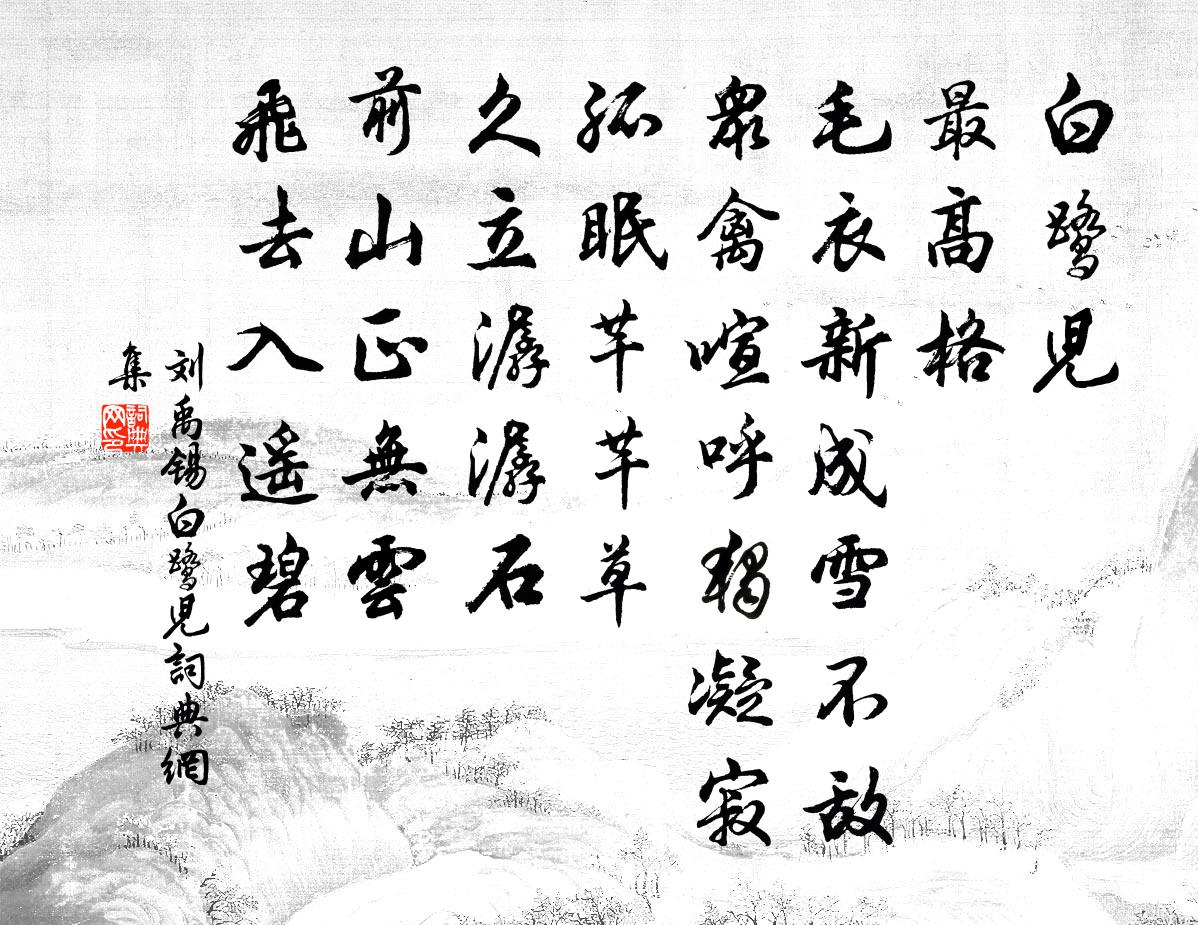 白鹭児
最高格
毛衣新成雪不敵
衆禽喧呼獨凝寂
孤眠芊芊草
久立潺潺石
前山正無雲
飛去入遥碧
刘禹锡白鹭児詞典網
集
詞典
网印